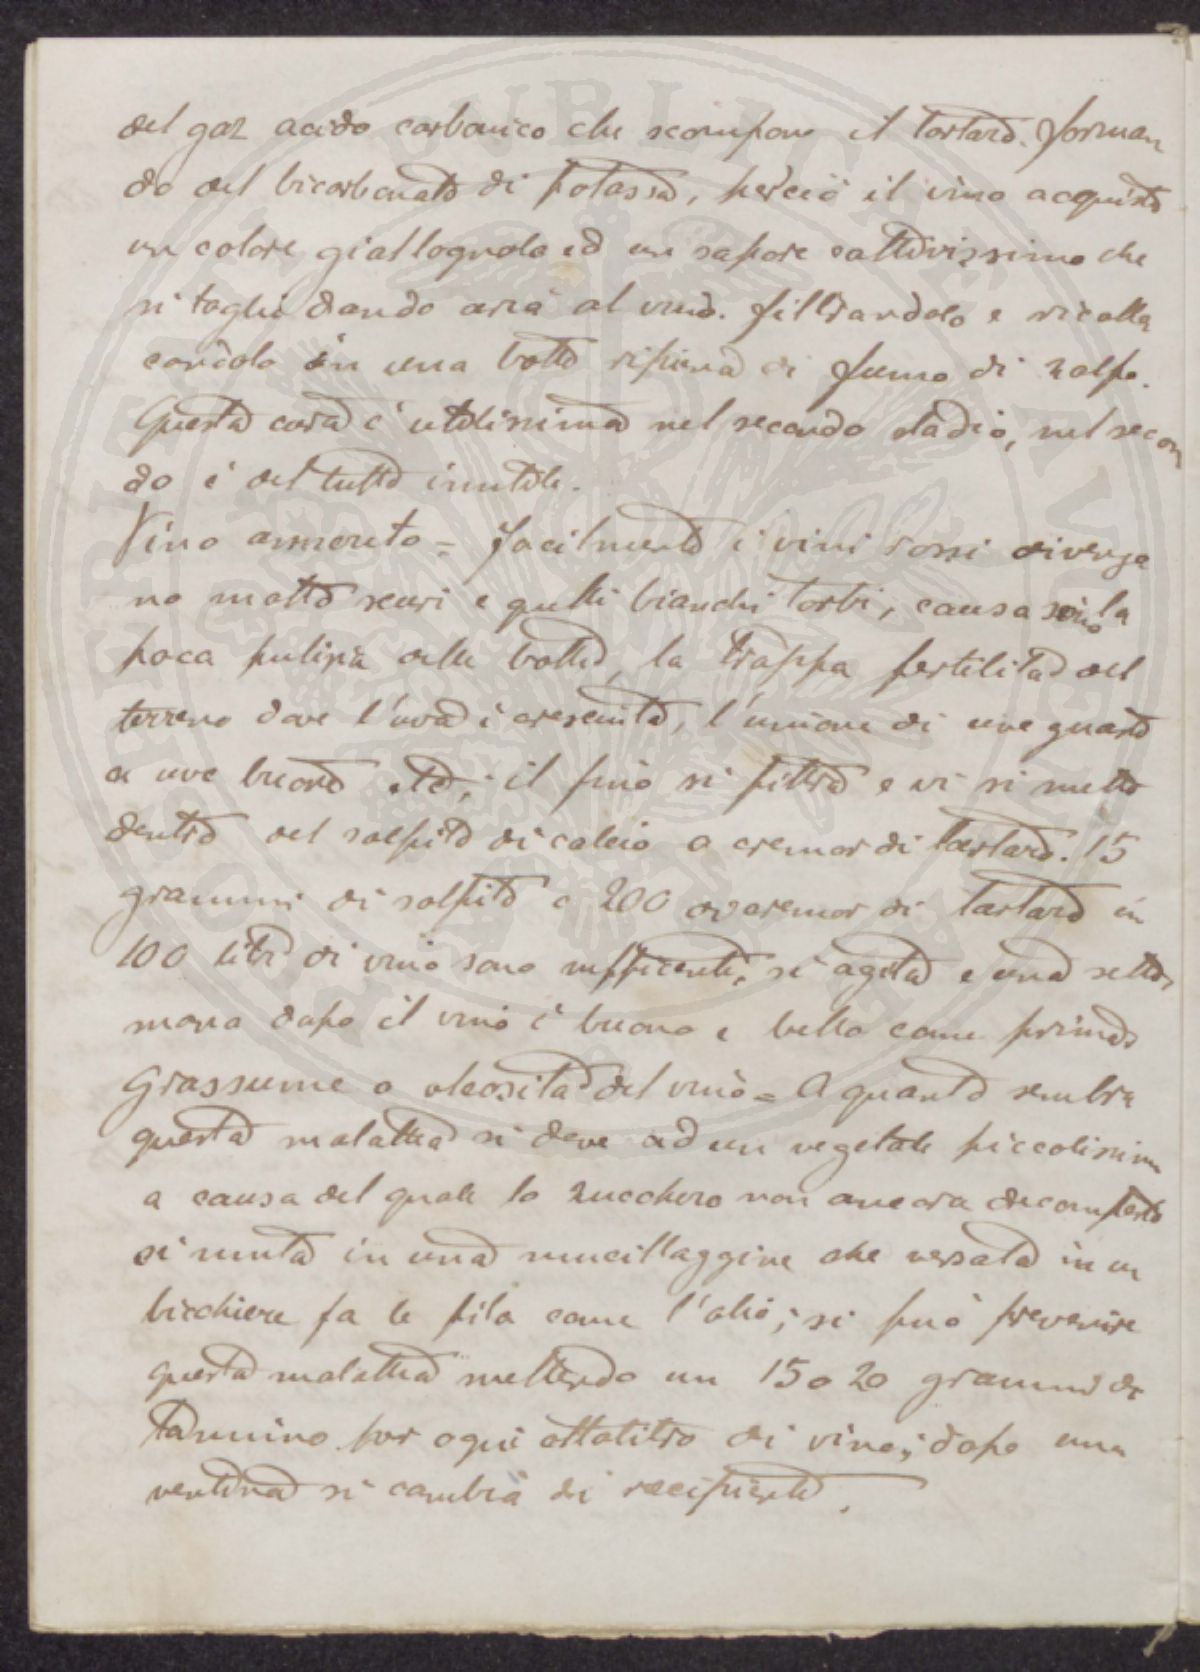 del gaz acido carbonico che scompone il tartaro. forman
do del bicarbonato di potassa, perciò il vino acquista
un colore giallognolo ed un sapore cattivissimo che
si toglie dando aria al vino. filtrandolo e ricolla
candolo in una botte ripiena di fumo di zolfo.
Questa cosa è utilissima nel secondo stadio, nel secon
do è del tutto inutile.
Vino annerito = facilmente i vini rossi divenga
no molto scuri e quelli bianchi torbi, causa sono la
poca pulizia delle botte, la troppa fertilità del
terreno dove l'uva è cresciuta, l'unione di uve guaste
a uve buone etc; il vino si filtra e vi si mette
dentro del solfito di calcio o cremor di tartaro. 15
grammi di solfito e 200 di cremor di tartaro in
100 litri di vino sono sufficenti, si agita e una setti
mana dopo il vino è buono e bello come prima.
Grassume o oleosità del vino = A quanto sembra
questa malattia si deve ad un vegetale piccolissimo
a causa del quale lo zucchero non ancora decomposto
si muta in una mucillaggine che versata in un
bicchiere fa le fila come l'olio; si può prevenire
questa malattia mettendo un 15 o 20 grammi di
Tannino per ogni ettolitro di vino; dopo una
ventina si cambia di recipiente.